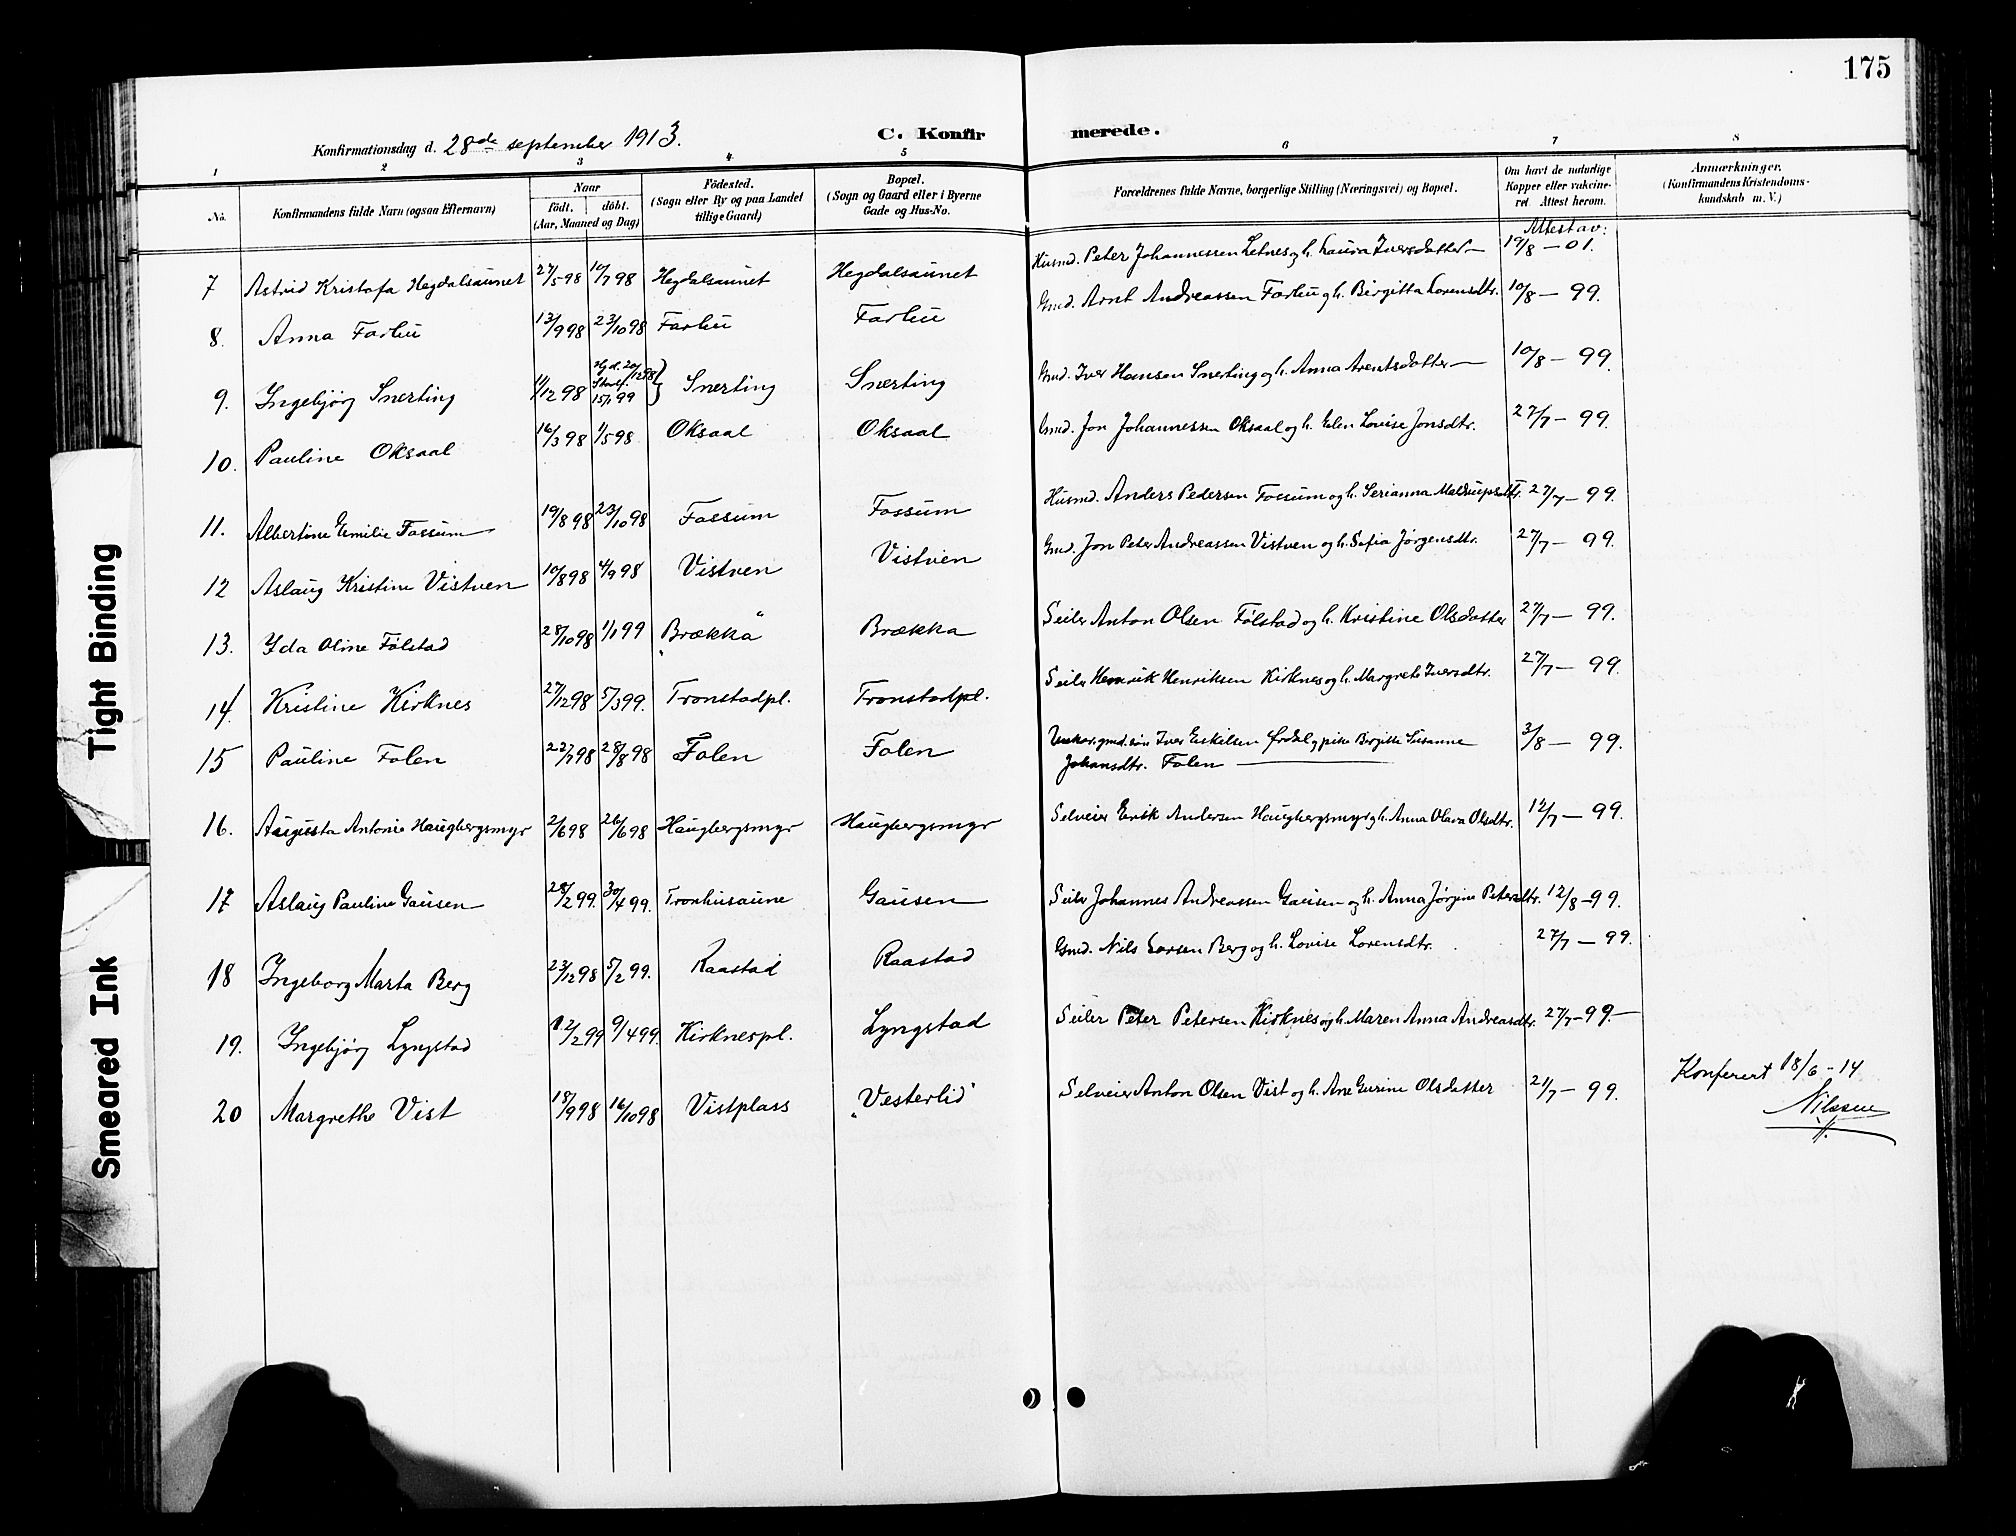 175
Konfirmationsdag d. 28de september 1913.
C. Konfirmerede.
1 2 3 4 5 6 7 8
No. Konfirmandens fulde Navn (ogsaa Efternavn) Naar født. døbt. (Aar, Maaned og Dag) Fødested. (Sogn eller By og paa Landet tillige Gaard) Bopæl. (Sogn og Gaard eller i Byerne Gade og Hus-No. Forældrenes fulde Navne, borgerlige Stilling (Næringsvei) og Bopæl. Om havt de naturlige Kopper eller vakcineret Attest herom. Anmærkninger. (Konfirmandens Kristendomskundskab m. V.)
Attest av:
7 Astrid Kristofa Hegdalsaunet 27/5 98 10/7 98 Hegdalsaunet Hegdalsaunet Husmd. Peter Johannessen Letnes og h. Laura Iversdatter — 19/8 — 01.
8. Anna Farhu 13/9 98 23/10 98 Farhu Farhu Gmd. Arnt Andreassen Farhu og h. Birgitta Lorensdtr. 10/8 — 99.
9. Ingebjørg Snerting 11/12 98 Hjd. 20/12 98 Stadf. 15/1 99 } Snerting Snerting Gmd. Iver Hansen Snerting og h. Anna Arentsdatter — 10/8 — 99.
10. Pauline Oksaal 16/3 98 1/5 98 Oksaal Oksaal Gmd. Jon Johannessen Oksaal og h. Elen Lovise Jonsdtr. 27/7 — 99.
11. Albertine Emilie Fossum 19/8 98 23/10 98 Fossum Fossum Husmd. Anders Pedersen Fossum og h. Serianna 27/7 — 99.
12 Aslaug Kristine Vistven 10/8 98 4/9 98 Vistven Vistven Gmd. Jon Peter Andreassen Vistven og h. Sofia Jørgensdtr. 27/7 — 99.
13. Ida Oline Følstad 28/10 98 1/1 99 „Brækka" Brækka Seiler Anton Olsen Følstad og h. Kristine Olsdatter 27/7 — 99.
14. Kristine Kirknes 27/12 98 5/3 99. Tronstadpl. Tronstadpl. Seiler Henrik Henriksen Kirknes og h. Margrete Iversdtr. 27/7 — 99.
15 Pauline Folen 22/7 98 28/8 98 Folen Folen Unkar. gmd. søn Iver Eskilsen Ørdal og pike Birgitte Susanne Johansdtr. Folen — 3/8 — 99.
16. Augusta Antonie Haugbergsmyr 2/6 98 26/6 98 Haugbergsmyr Haugbergsmyr Selveier Erik Andersen Haugbergsmyr og h. Anna Olava Olsdtr. 12/7 — 99.
17 Aslaug Pauline Gausen 28/2 99. 30/4 99. Tronhusaune Gausen Seiler Johannes Andreassen Gausen og h. Anna Jørgine Petersdtr. 12/8 — 99.
18 Ingeborg Marta Berg 23/12 98 5/2 99. Raastad Raastad Gmd. Nils Larsen Berg og h. Lovise Lorensdtr. 27/7 — 99.
19. Ingebjørg Lyngstad 12/2 99 9/4 99. Kirknespl. Lyngstad Seiler Peter Petersen Kirknes og h. Maren Anna Andreasdtr. 27/7 — 99 —
20 Margrethe Vist 18/9 98 16/10 98 Vistplass „Vesterlid" Selveier Anton Olsen Vist og h. Ane Gurine Olsdatter 21/7 — 99. Konferert 18/6 - 14
Nilssen
Tight Binding
Smeared Ink